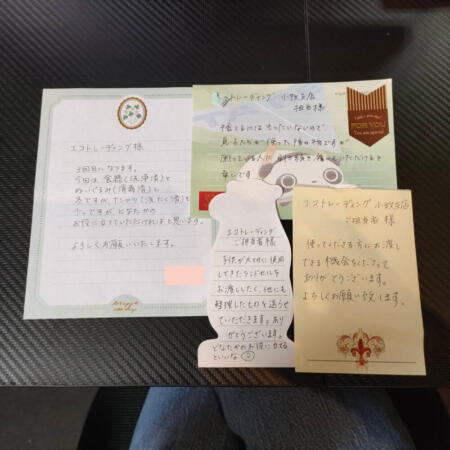 エコトレーディング様
3回目になります。
今回は食器(洗浄済)と
ぬいぐるみ(消毒済)と
冬ですが、Tシャツ(洗たく済)を
少しですが、どなたかの
お役に立てていただければと思います。
よろしくお願いいたします。
エコトレーディング 小牧支店
担当様
捨てるにはもったいないので
息子たちが使った
困っている人に
幸いです
FOR YOU
You are special
エコトレーディング
ご担当者様
子供が大切に使用
してきたランドセルを
お渡ししたく、他にも
整理したものを送らせ
ていただきます。あり
がとうございます。
どなたかのお役に立てる
といいな
エコトレーディング 小牧支店
ご担当者 様
使ってくださる方にお渡し
できる機会をくださって
ありがとうございます。
よろしくお願い致します。